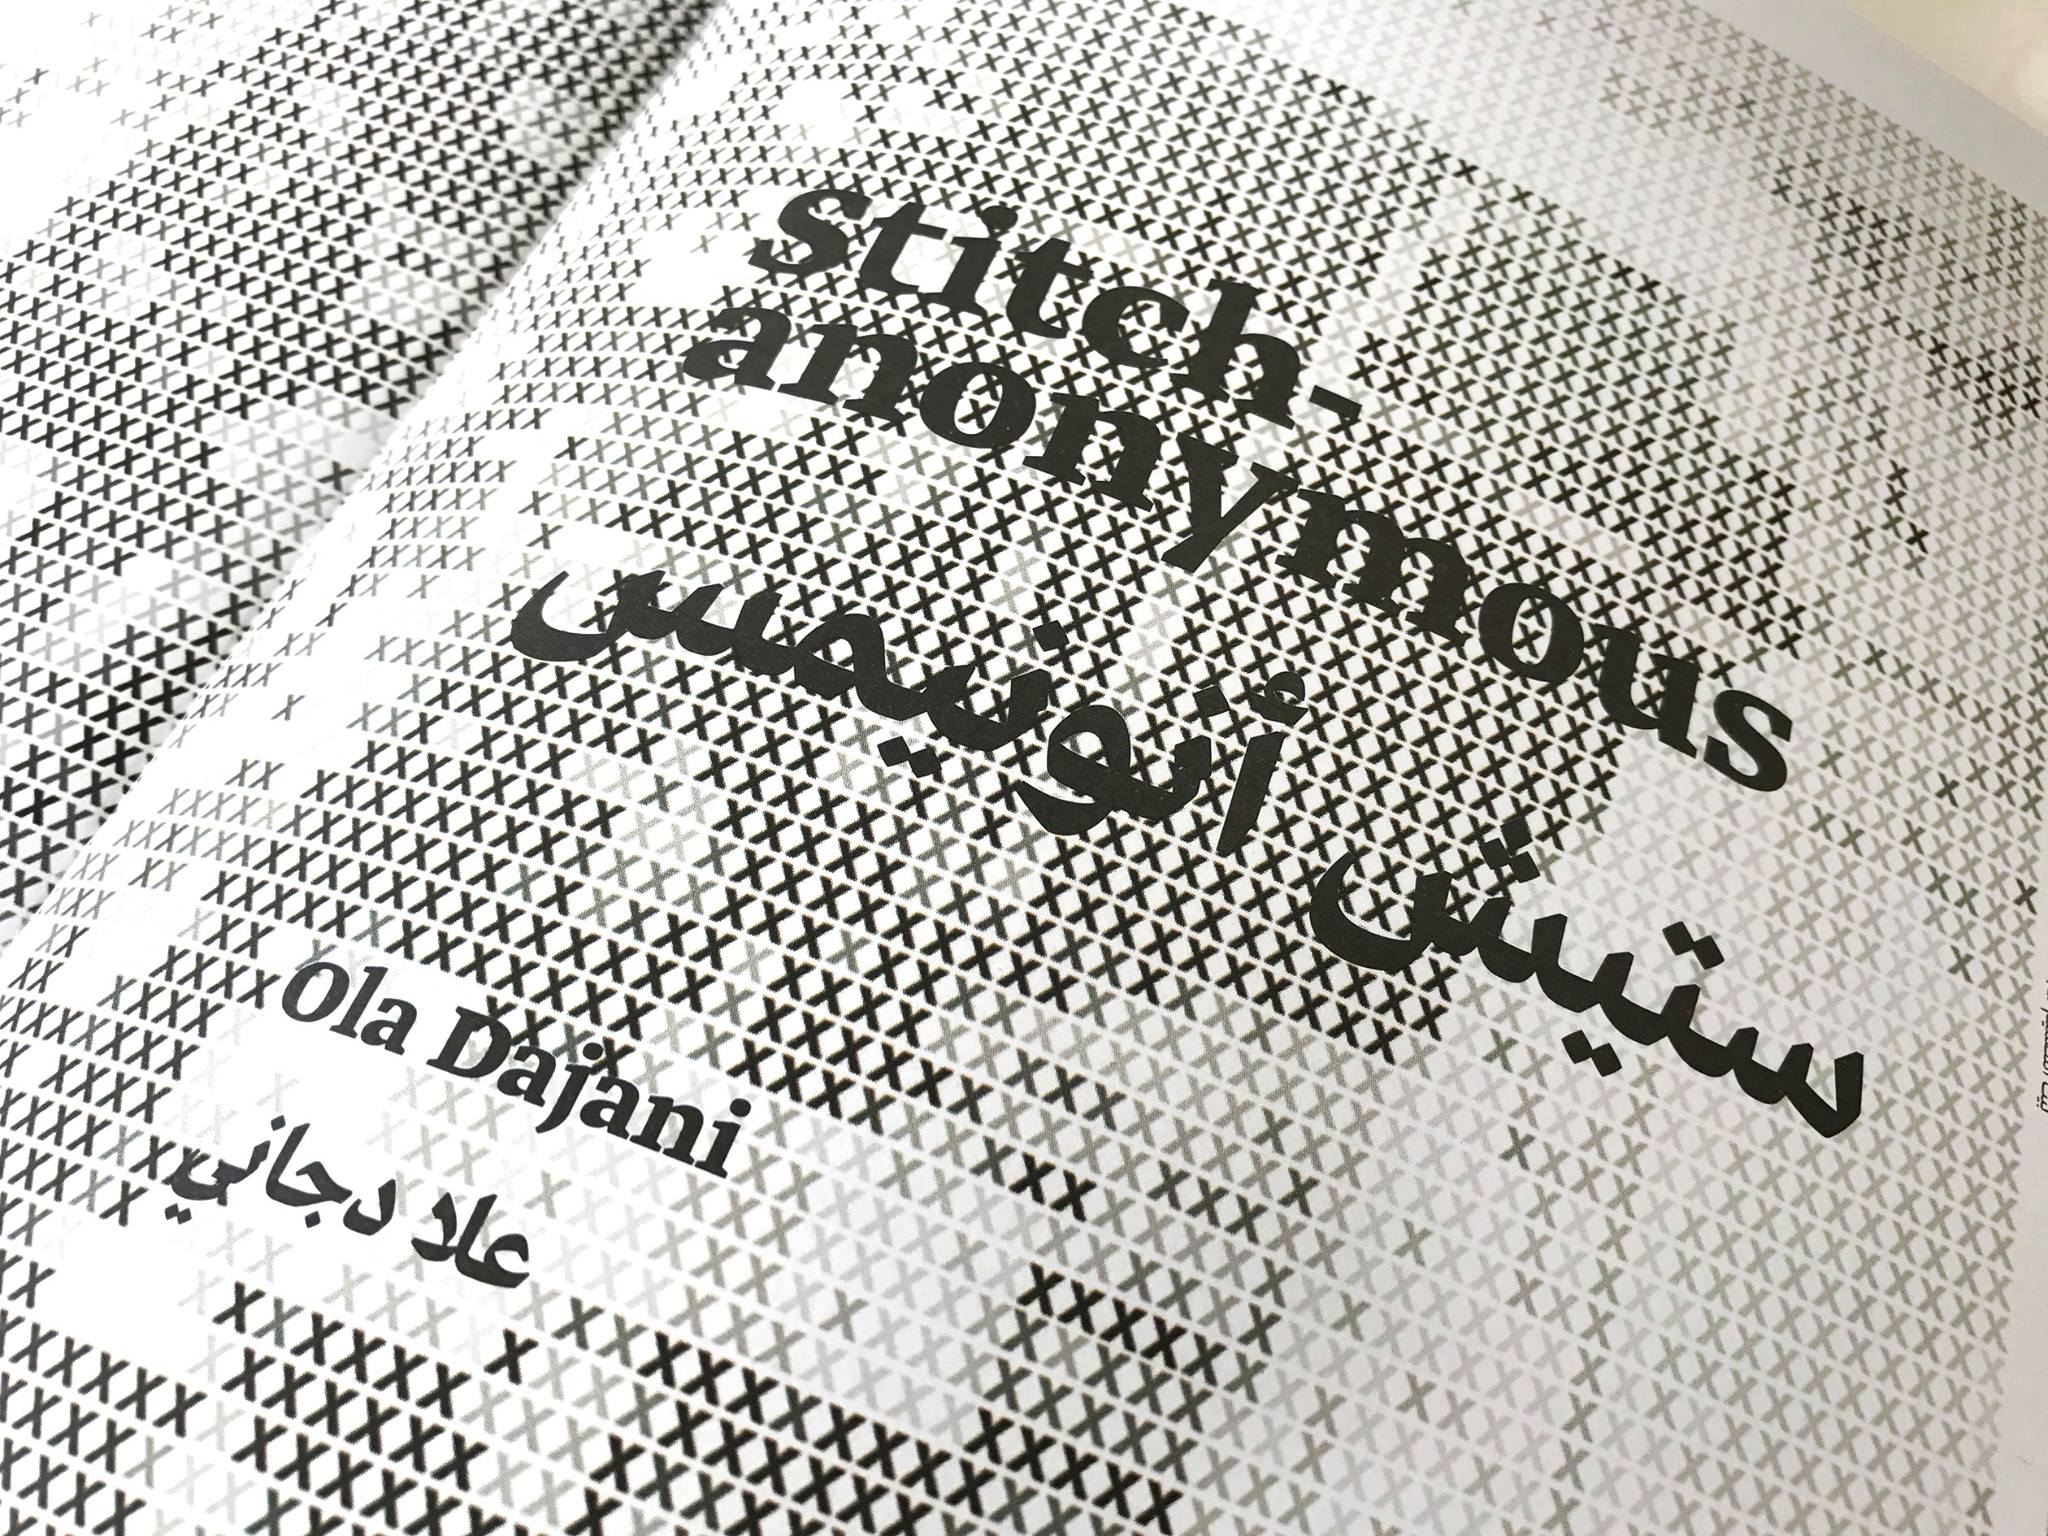 Stitch-
anonymous
ستيتش أنونيمس
Ola Dajani
علا دجاني